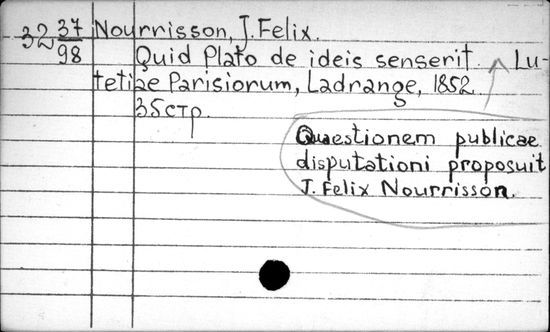 32 37/98 Nourrisson, J. Felix.
Quid Plato de ideis senserit. Lu-
tetiae Parisiorum, Ladrange, 1852
35стр.
Quaestionem publicae
disputationi proposuit
J. Felix Nourrisson.